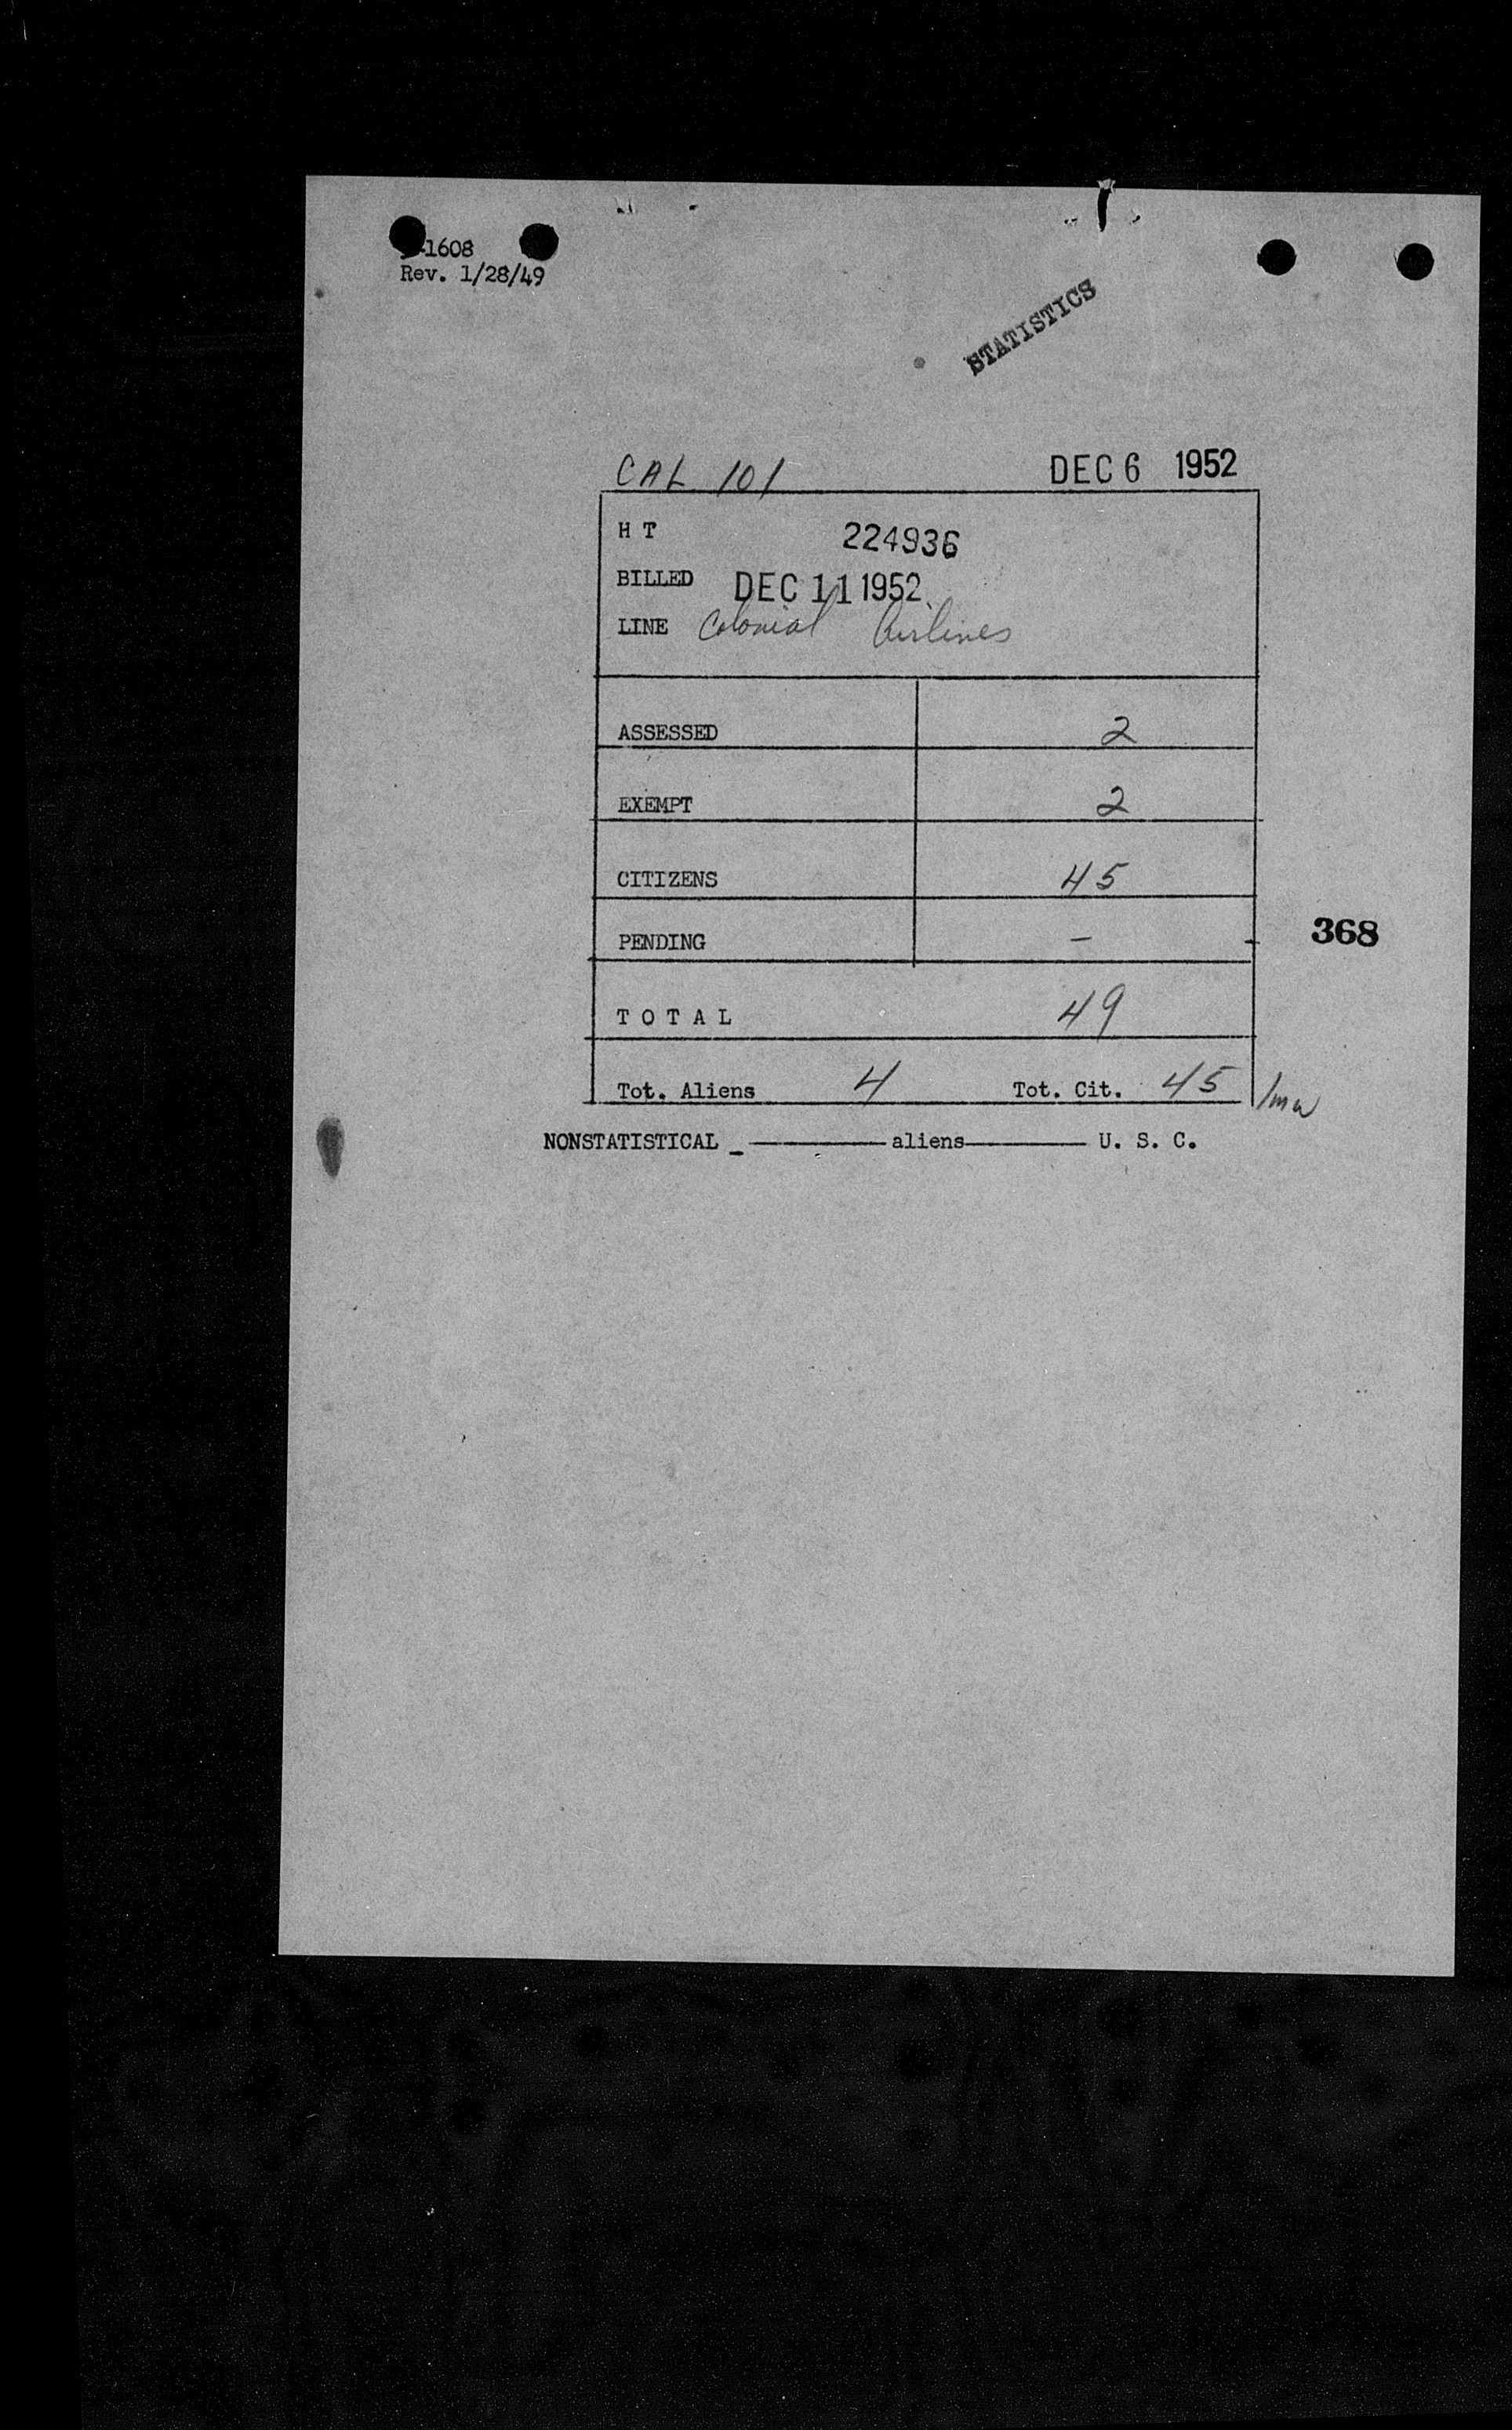 -1608
Rev. 1/28/49
STATISTICS
CAL 101 DEC 6 1952
H T 224936
BILLED DEC 11 1952
LINE Colonial Airlines
ASSESSED 2
EXEMPT 2
CITIZENS 45
PENDING –
368
T O T A L 49
Tot. Aliens 4 Tot. Cit. 45
NONSTATISTICAL aliens U. S. C.